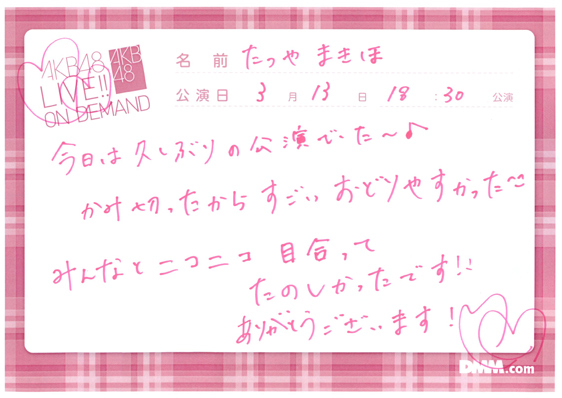 AKB48
LIVE!!
ON DEMAND
AKB
48
名前 たつや まきほ
公演日 3月13日 18:30 公演
今日は久しぶりの公演でした〜♪
かみ切ったから すごい おどりやすかった
みんなと ニコニコ 目合って
たのしかったです!!
ありがとうございます!
DMM.com